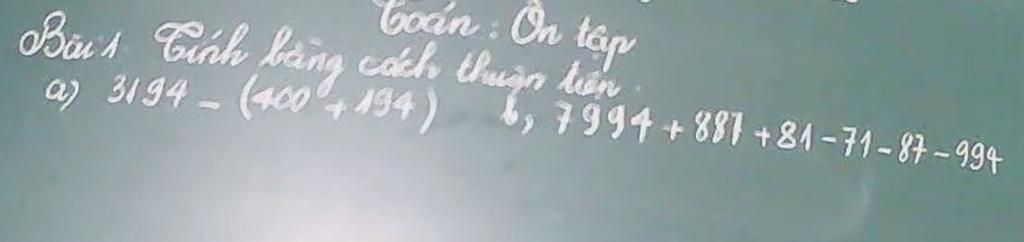 Toán: Ôn tập
Bài 1 Tính bằng cách thuận tiện.
a) 3194 - (400 + 194) b, 7994 + 887 + 81 - 71 - 87 - 994